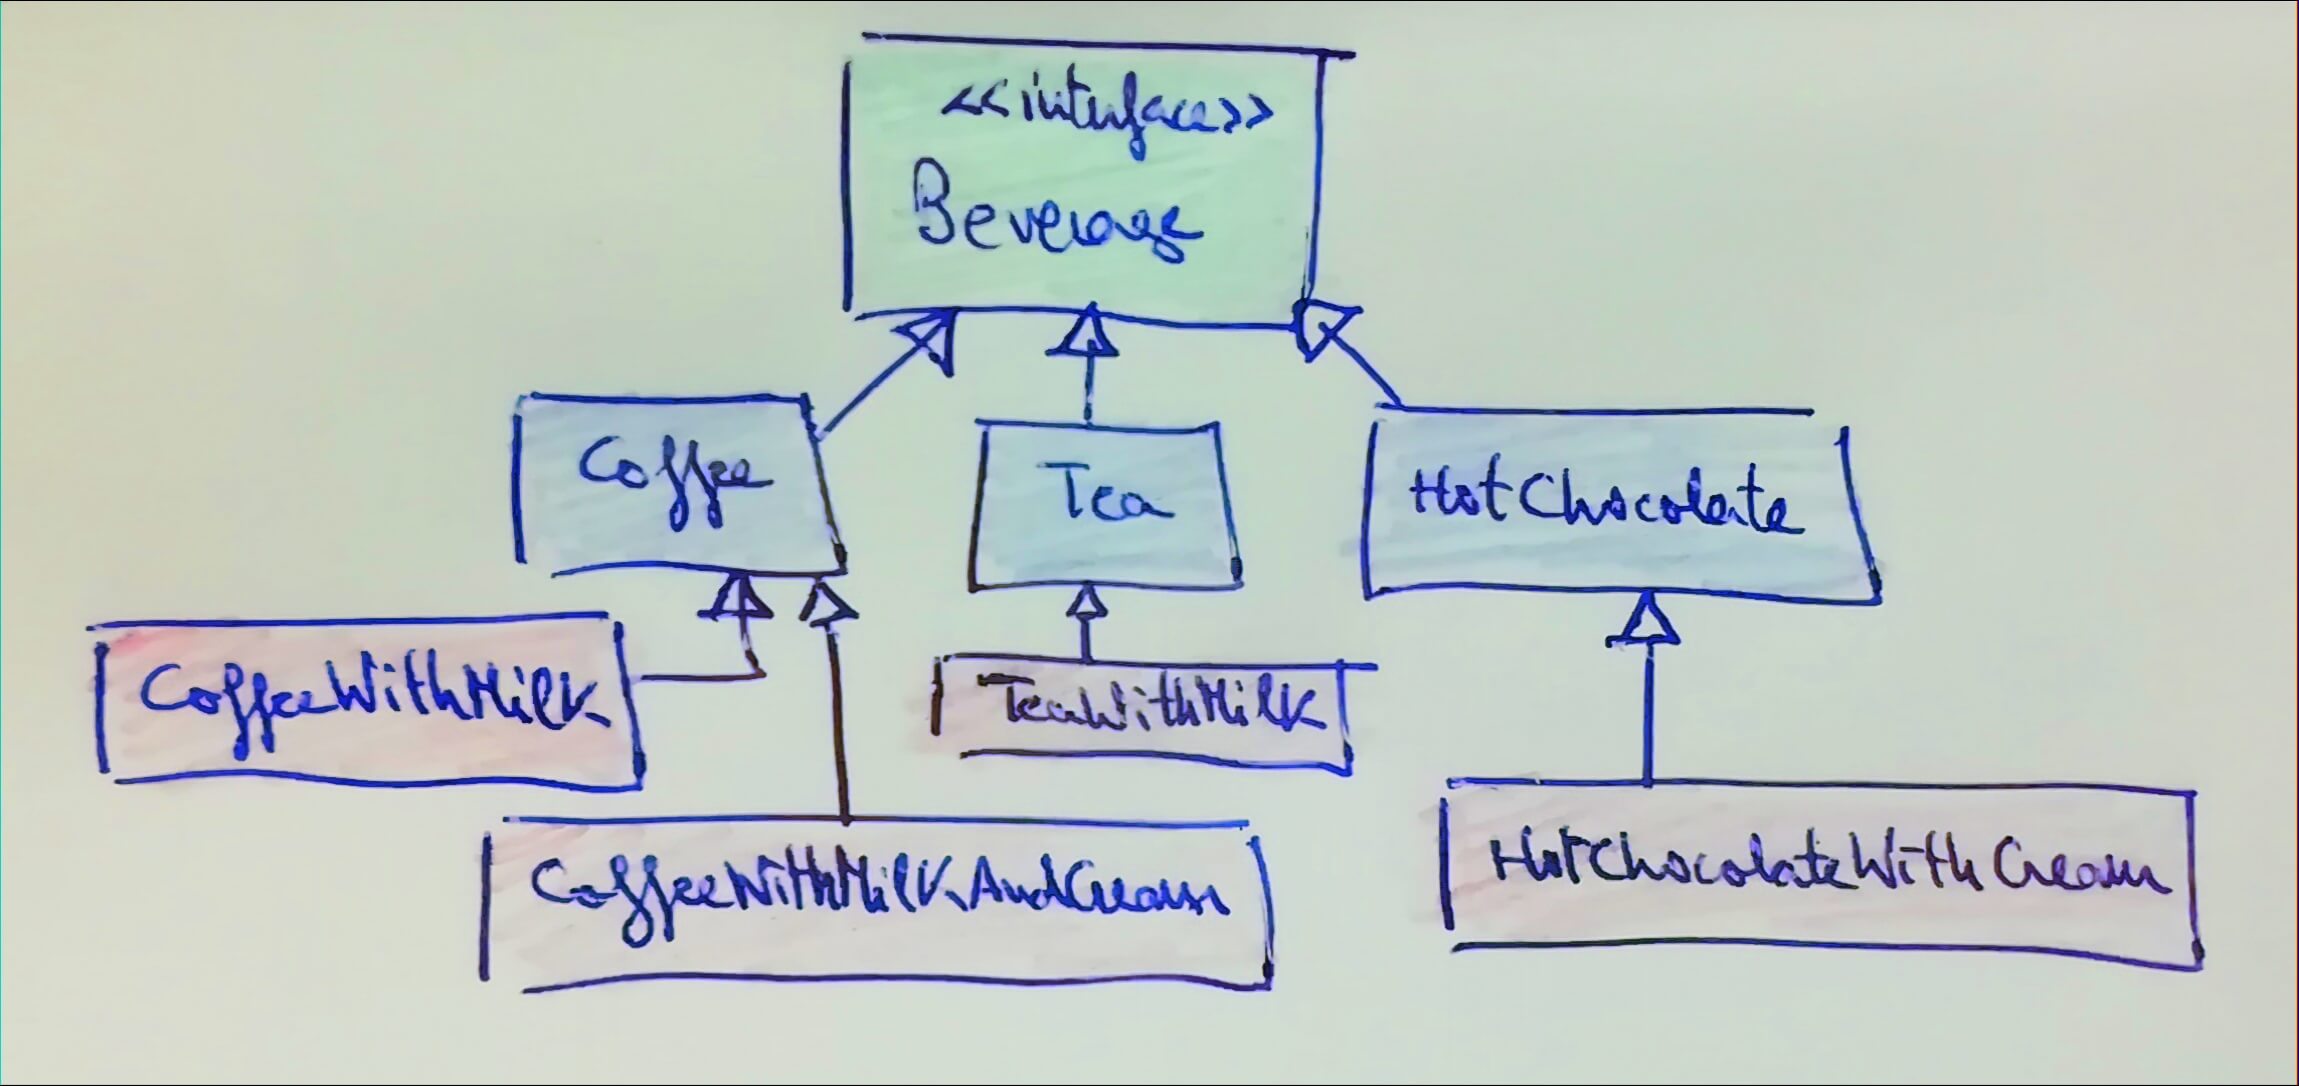 <<interface>>
Beverage
Coffee
Tea
HotChocolate
CoffeeWithMilk
TeaWithMilk
CoffeeWithMilkAndCream
HotChocolateWithCream